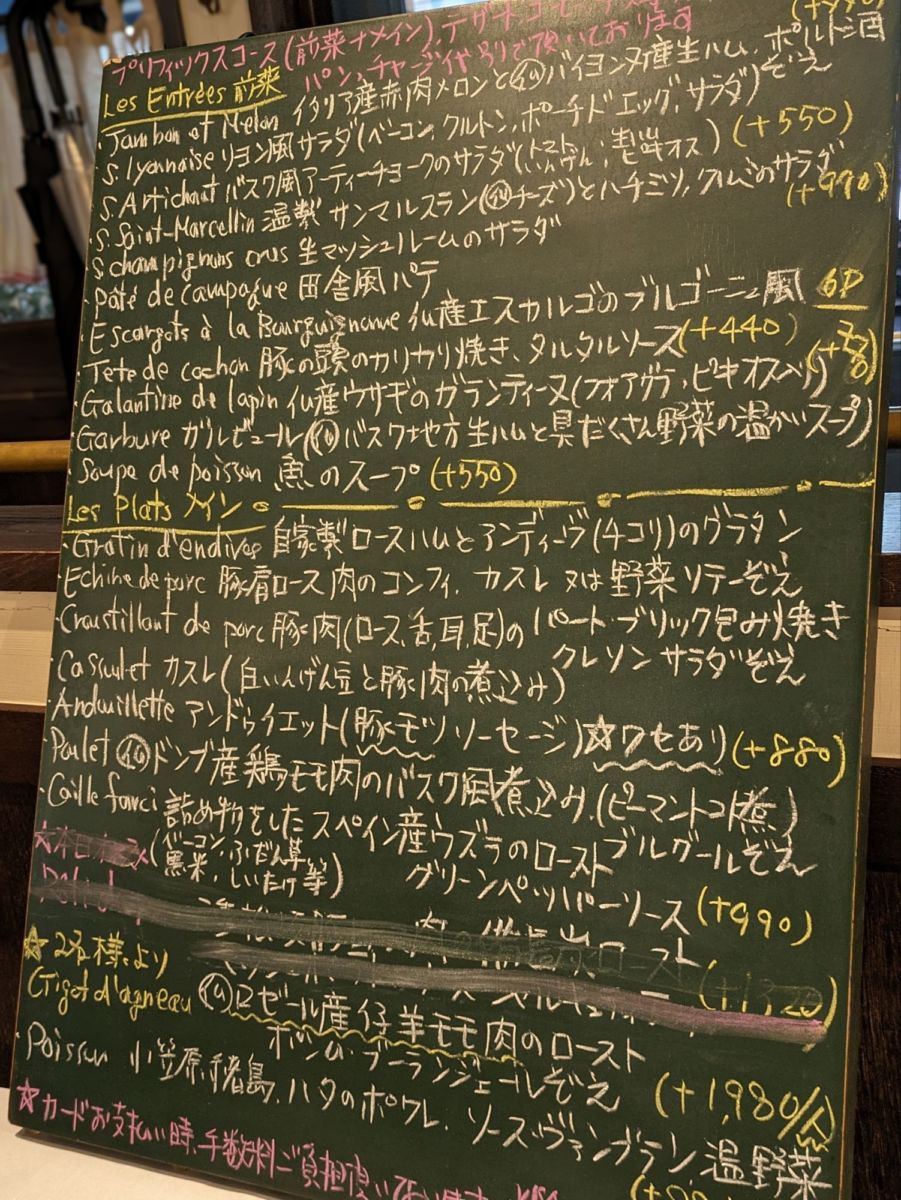 プリフィックスコース(前菜+メイン)デザート コーヒー
パン、チャージ代 別で頂いております
Les Entrées 前菜
・Jambon et Melon イタリア産赤肉メロンと㋑のバイヨンヌ産生ハム、ポルト酒ぞえ
S. lyonnaise リヨン風サラダ(ベーコン、クルトン、ポーチドエッグ、サラダ)
S. Artichaut バスク風アーティーチョークのサラダ(トマト、いんげん、 (+550)
S. Saint-Marcellin 温製 サンマルスラン(仏のチーズ)とハチミツ、クルミのサラダ (+990)
S. champignons crus 生マッシュルームのサラダ
・Pâté de campagne 田舎風パテ
・Escargots à la Bourguignonne 仏産エスカルゴのブルゴーニュ風 6P
・Tête de cochon 豚の頭のカリカリ焼き、タルタルソース (+440)
・Galantine de lapin 仏産ウサギのガランティーヌ(フォアグラ、ピスタチオ入り)
・Garbure ガルビュール(仏のバスク地方 生ハムと具だくさん野菜の温かいスープ)
・Soupe de poisson 魚のスープ (+550)
Les Plats メイン
・Gratin d'endives 自家製ロースハムとアンディーヴ(チコリ)のグラタン
・Echine de porc 豚肩ロース肉のコンフィ、カスレ 又は 野菜ソテーぞえ
・Croustillant de porc 豚肉(ロース、舌、耳、足)の パート・ブリック包み焼き
クレソン サラダぞえ
・Cassoulet カスレ(白いんげん豆と豚肉の煮込み)
・Andouillette アンドゥイエット(豚モツ ソーセージ)☆クセあり (+880)
・Poulet 仏のドンブ産鶏モモ肉のバスク風煮込み(ピーマントマト煮)
・Caille farci 詰め物をしたスペイン産ウズラのロースト ブルグールぞえ
(ベーコン、ふだん草、黒米、しいたけ等) グリーンペッパーソース (+990)
☆2名様より
Gigot d'agneau 仏のロゼール産仔羊モモ肉のロースト
ポンム・ブーランジェールぞえ (+1,980/人)
・Poisson 小笠原 ハタのポワレ ソース・ヴァンブラン 温野菜
☆カードお支払い時、手数料ご負担頂いて